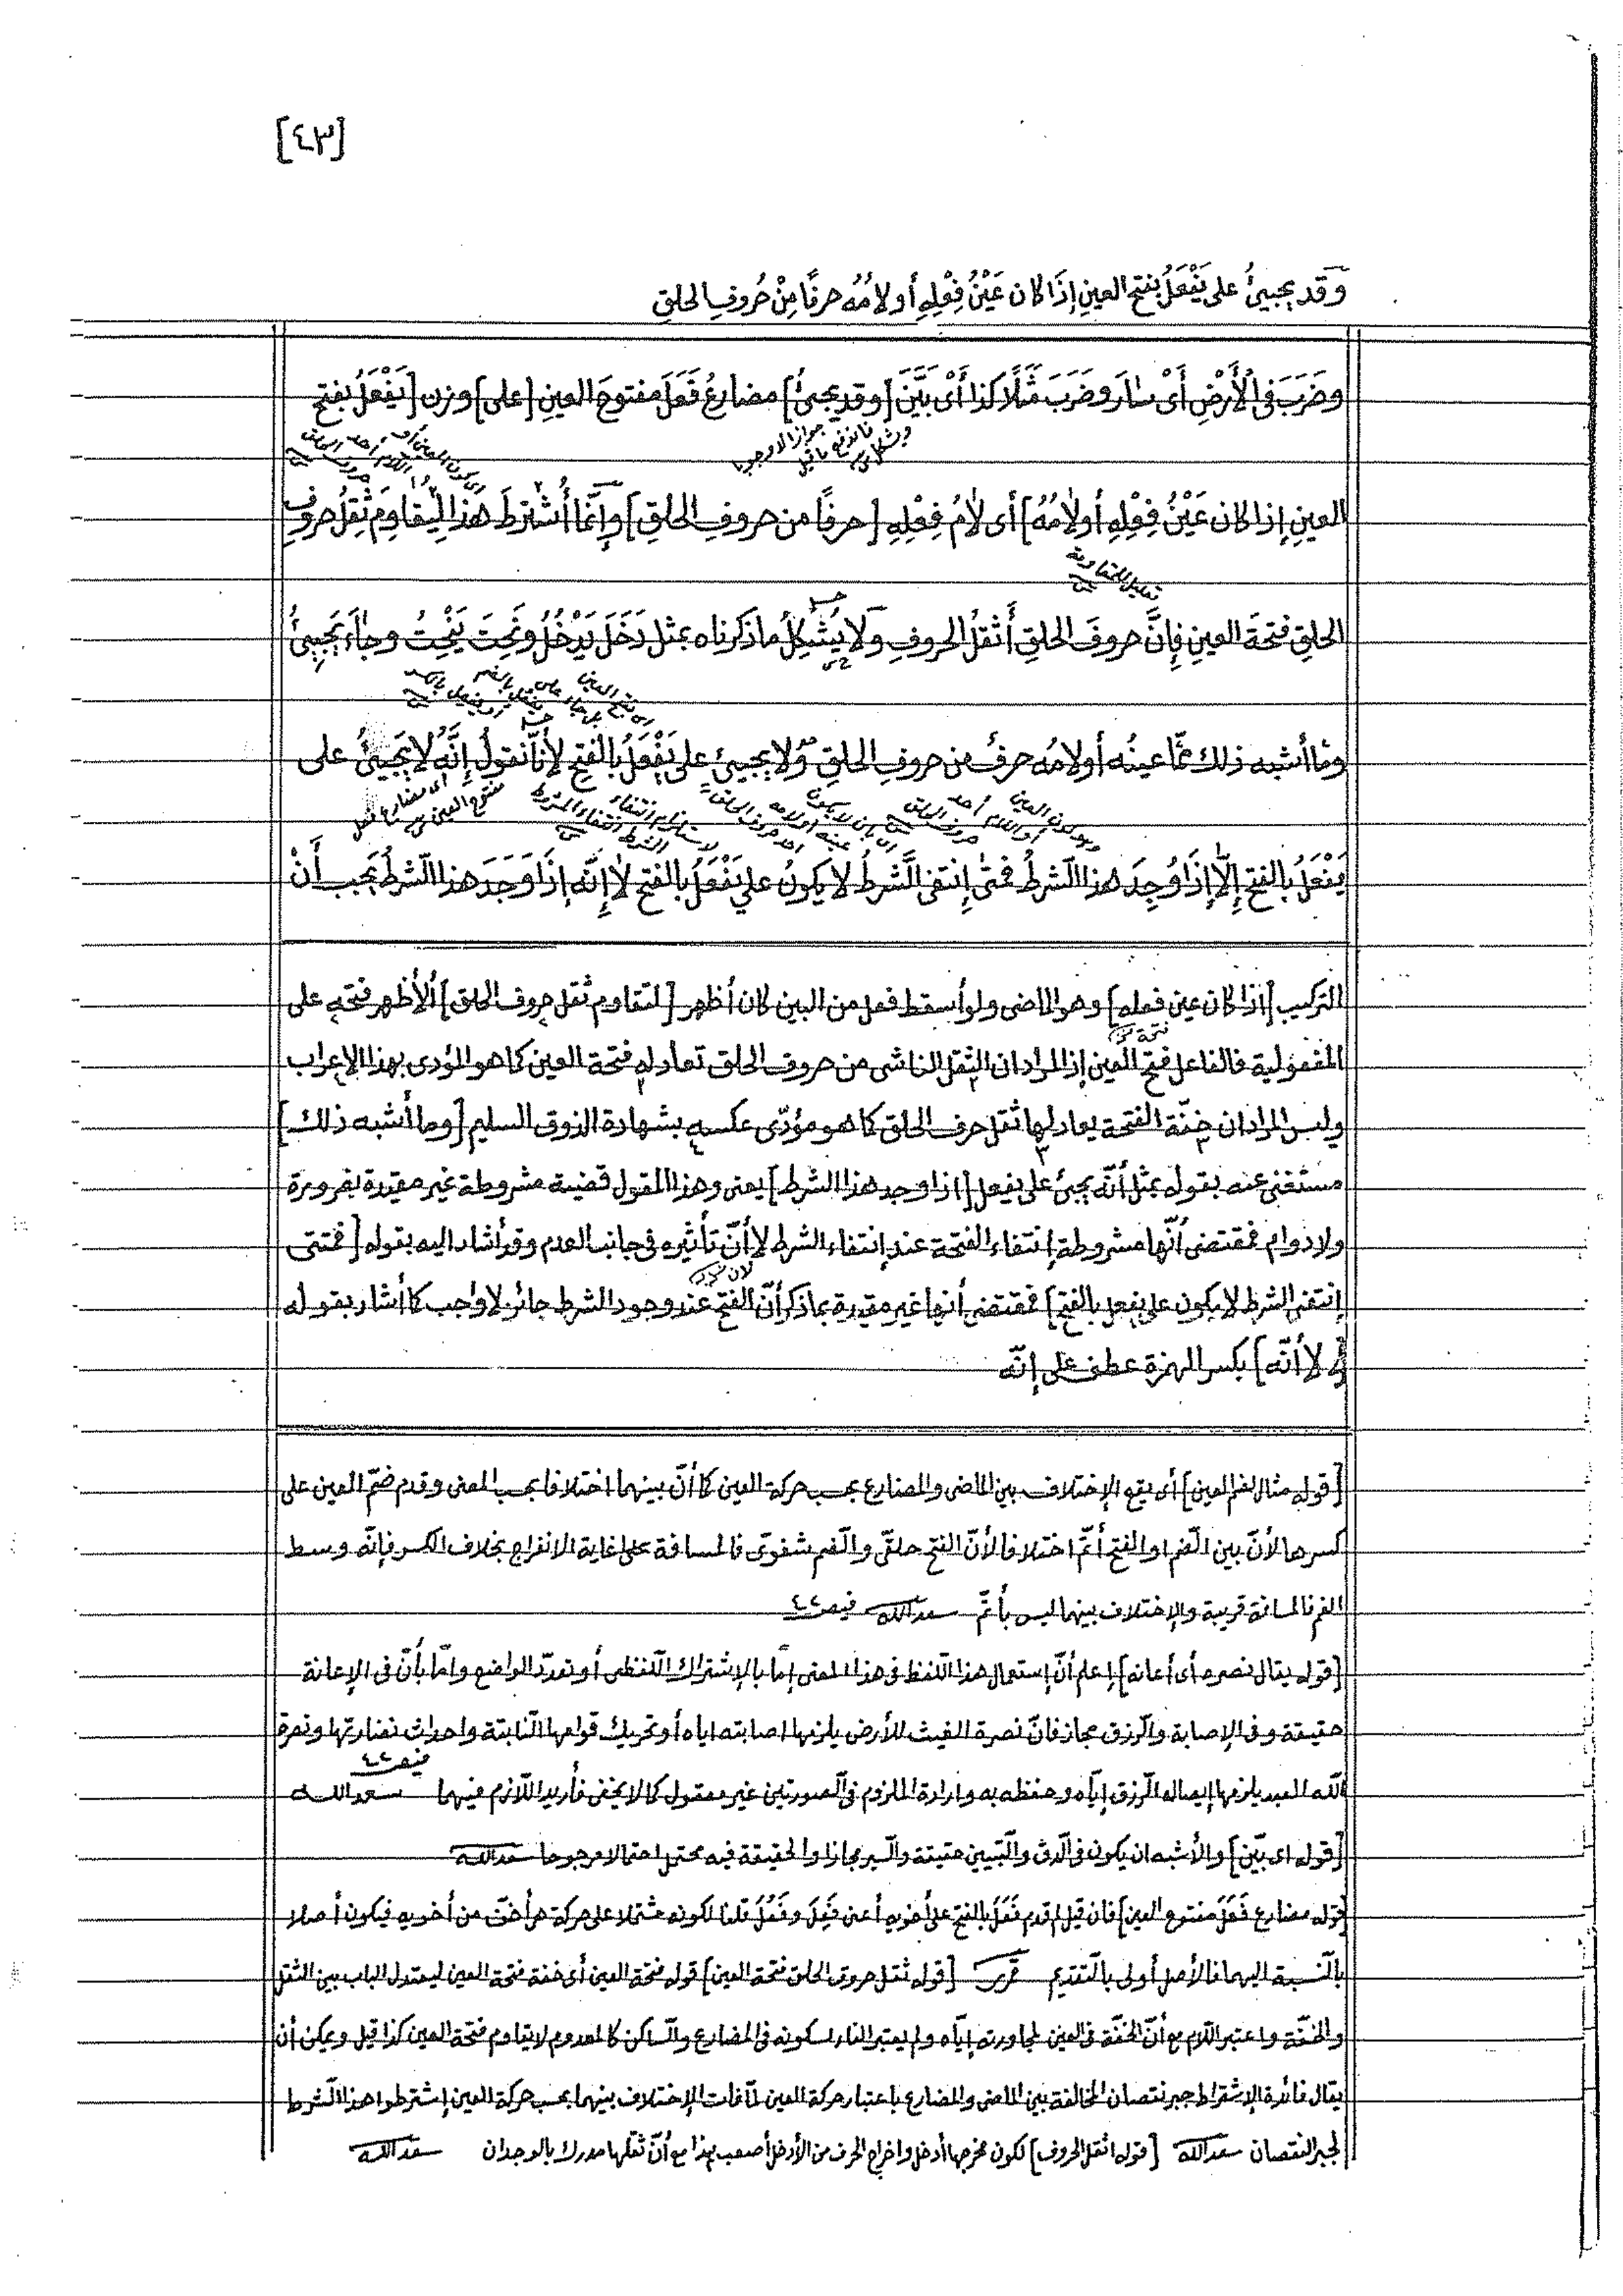 [٤٣]
وقد يجيئُ على يَفْعَلُ بفتح العينِ إِذَا كان عَيْنُ فِعْلِهِ أو لامُهُ حرفًا مِنْ حُروفِ الحلقِ
وضَرَبَ فى الْأَرْضِ أَىْ سٰارَ وضَرَبَ مَثَلًا كذا أَىْ بَيَّنَ [وقد يجئُ] مضارعُ فَعَلَ مفتوحَ العينِ [على] وزن [يَفْعَلُ بفتح
جوازا لا وجوبا
العينِ إذا كان عَيْنُ فِعْلِهِ أو لامُهُ] أى لامُ فِعْلِهِ [حرفًا من حروفِ الحلقِ] وإِنَّما أُشْتُرِطَ هذا لِيُقاوِمَ ثِقَلُ حروفِ
تعليل للمقاومة
الحلقِ فتحةَ العينِ فإِنَّ حروفَ الحلقِ أَثقلُ الحروفِ ولا يُشْكِلُ ما ذكرناه بمثل دَخَلَ يَدْخُلُ ونَحَتَ يَنْحِتُ وجٰاءَ يَجِيئُ
وما أشبه ذلك ممّا عينُه أو لامُه حرفٌ من حروفِ الحلقِ ولا يجيئ على يَفْعَلُ بالفتحِ لأنّا نقولُ إِنَّهُ لا يَجِيئُ على
أى مضارع فعل مفتوح العين
يَفْعَلُ بالفتحِ إِلّا إِذَا وُجِدَ هذا الشرطُ فمتى إِنتفى الشَّرطُ لا يكونُ على يَفْعَلُ بالفتحِ لا إِنَّه إذَا وَجَدَ هذا الشرطُ يجب أَنْ
التركيب [اذا كان عين فعله] وهو الماضى ولو أسقط فعل من البين كان أظهر [لتقاوم ثقل حروف الحلق] ألأظهر فتحه على
المفعولية فالفاعل فتح العين إذ المراد ان الثقل الناشى من حروف الحلق تعادله فتحة العين كما هو المؤدى بهذا الإعراب
وليس المراد ان خفّة الفتحة يعادلها ثقل حرف الحلق كما هو مؤدّى عكسه بشهادة الذوق السليم [وما أشبه ذلك]
مستغنى عنه بقوله بمثل أنّه يجئ على يفعل [اذا وجد هذا الشرط] يعنى وهذا المقول قضية مشروطة غير مقيدة بضرورة
ولا دوام فمقتضى أنّها مشروطة إنتفاء الفتحة عند إنتفاء الشرط لأنّ تأثيره فى جانب العدم وقد أشار اليه بقوله [فمتى
إنتفى الشرط لا يكون على يفعل بالفتح] فمقتضى أنها غير مقيدة بما ذكر أنّ الفتح عند وجود الشرط جائز لا واجب كما أشار بقوله
[لا أنّه] بكسر الهمزة عطف على إنّه
[قوله مثال لضم العين] أى يقع الإختلاف بين الماضى والمضارع بحسب حركة العين كما أنّ بينهما اختلافا بحسب المعنى وقدم ضمّ العين على
كسرها لأنّ بين الضم والفتح أتمّ اختلافا لأنّ الفتح حلقى والضم شفوىّ فالمسافة على غاية الانفراج بخلاف الكسر فإنّه وسط
الفم فالمسافة قريبة والإختلاف بينهما ليس بأتمّ سعدالله
[قوله يقال نصره أى أعانه] إعلم أنّ إستعمال هذا اللفظ فى هذا المعنى إمّا بالإشتراك اللفظى أو تعدّد الواضع وامّا بأنّ فى الإعانة
حقيقة وفى الإصابة والرزق مجاز فانّ نصرة الغيث للأرض يلزمها اصابته اياه أو تحريك قواها النابتة واحداث نضارتها ونصرة
الله العبد يلزمها إيصاله الرزق إيّاه وحفظه به وارادة الملزوم فى الصورتين غير معقول كما لا يخفى فأريد اللازم فيهما سعدالله
[قوله اى بيّن] والأشبه ان يكون فى الدق والتبيين حقيقة والسير مجازا والحقيقة فيه محتمل احتمالا مرجوحا سعدالله
[قوله مضارع فَعَلَ مفتوح العين] فان قيل لم قدم فَعَلَ بالفتح على أخويه أعنى فَعِلَ وفَعُلَ قلنا لكونه مشتملا على حركة هى أخفّ من أخويه فيكون أصلا
بالنسبة اليهما فالأصل أولى بالتقديم [قوله ثقل حروف الحلق فتحة العين] قوله فتحة العين أى خفة فتحة العين ليعتدل الباب بين الثقل
والخفّة واعتبر اللام مع أنّ الخفّة فى العين لمجاورته إيّاه ولم يعتبر الفاء لسكونه فى المضارع والساكن كالمعدوم لا يقاوم فتحة العين كذا قيل ويمكن أن
يقال فائدة الإشتراط جبر نقصان المخالفة بين الماضى والمضارع باعتبار حركة العين لمّا فات الإختلاف بينهما بحسب حركة العين إشترطوا هذا الشرط
لجبر النقصان سعدالله [قوله اثقل الحروف] لكون مخرجها أدخل واخراج الحرف من الأدخل أصعب هذا مع أنّ ثقلها مدرك بالوجدان سعدالله